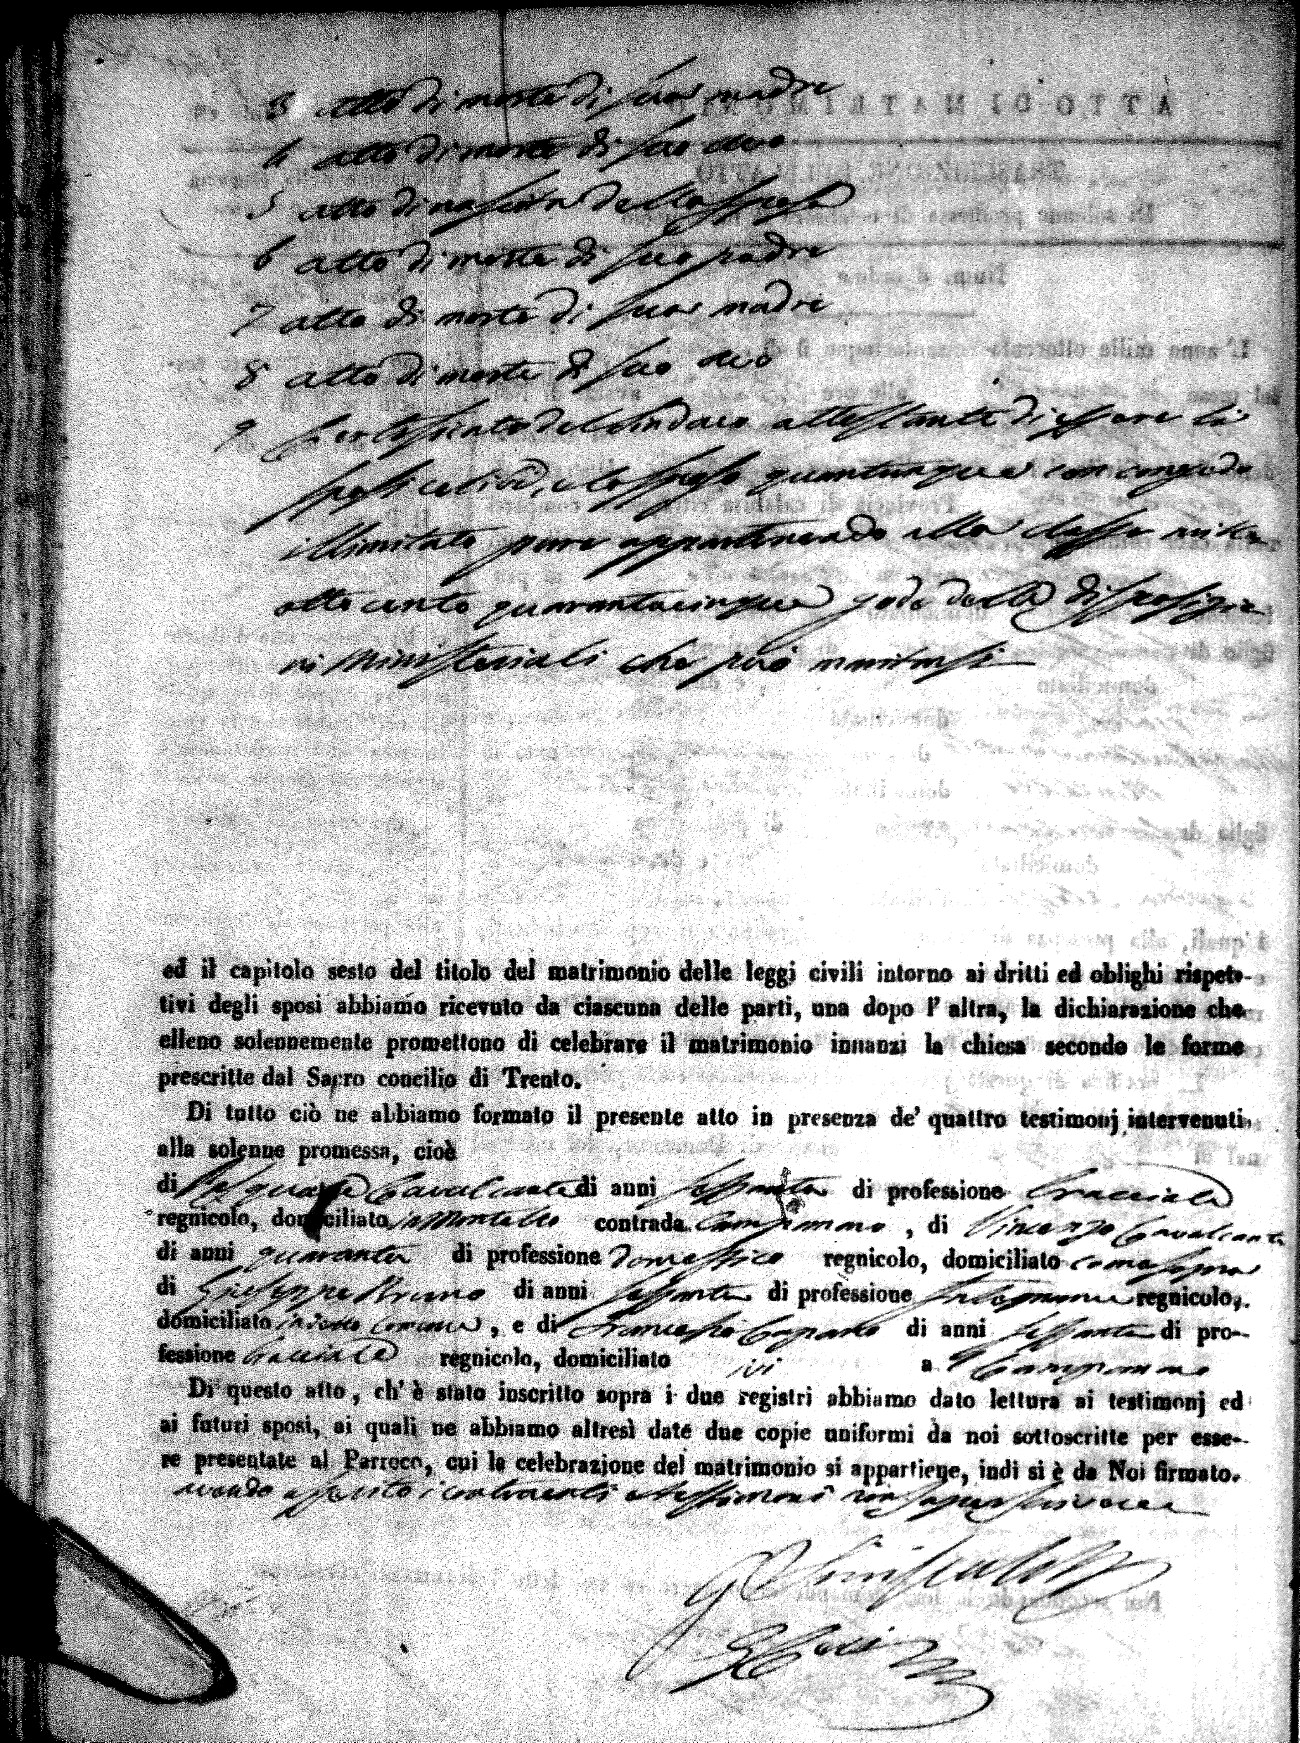 3 atto di morte di sua madre
4 atto di morte di suo avo
5 atto di nascita della sposa
6 atto di morte di suo padre
7 atto di morte di sua madre
8 atto di morte di suo avo
9 certificato del Sindaco attestante di essere li
sposi celibi, e lo sposo quantunque in congedo
illimitato pure appartenendo alla classe mille
ottocento quarantacinque gode delle disposizio
ni Ministeriali che può maritarsi
ed il capitolo sesto del titolo del matrimonio delle leggi civili intorno ai dritti ed oblighi rispet-
tivi degli sposi abbiamo ricevuto da ciascuna delle parti, una dopo l' altra, la dichiarazione che
elleno solennemente promettono di celebrare il matrimonio innanzi la chiesa secondo le forme
prescritte dal Sacro concilio di Trento.
Di tutto ciò ne abbiamo formato il presente atto in presenza de' quattro testimonj intervenuti
alla solenne promessa, cioè
di Pasquale Cavalcante di anni sessanta di professione bracciale
regnicolo, domiciliato in Montalto contrada Campomano, di Vincenzo Cavalcante
di anni quaranta di professione Domestico regnicolo, domiciliato come sopra
di Giuseppe Bruno di anni sessanta di professione regnicolo,
domiciliato in detto Comune, e di Francesco Caparo di anni sessanta di pro-
fessione bracciale regnicolo, domiciliato ivi a Campomano
Di questo atto, ch' è stato inscritto sopra i due registri abbiamo dato lettura ai testimonj ed
ai futuri sposi, ai quali ne abbiamo altresì date due copie uniformi da noi sottoscritte per esse-
re presentate al Parroco, cui la celebrazione del matrimonio si appartiene, indi si è da Noi firmato.
avendo asserito i contraenti e testimoni non saper scrivere